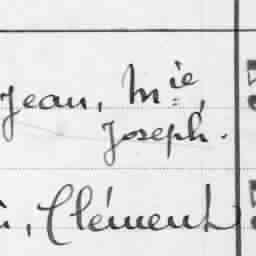 Jean, Mie,
Joseph.
, Clément